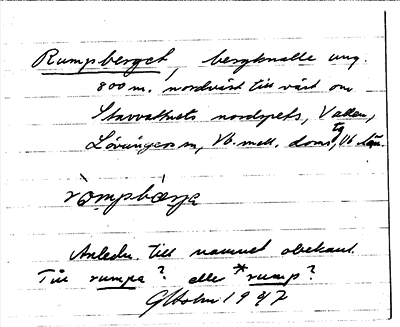 Rumpberget, bergknalle ung.
800 m. nordväst till väst om
Stavvattnets nordspets, Vallen,
Lövångers sn, Vb. mell. doms tg, Vb. län.
römpbærje
Anledn. till namnet obekant.
Till rumpa? eller *rump?
G Holm 1947